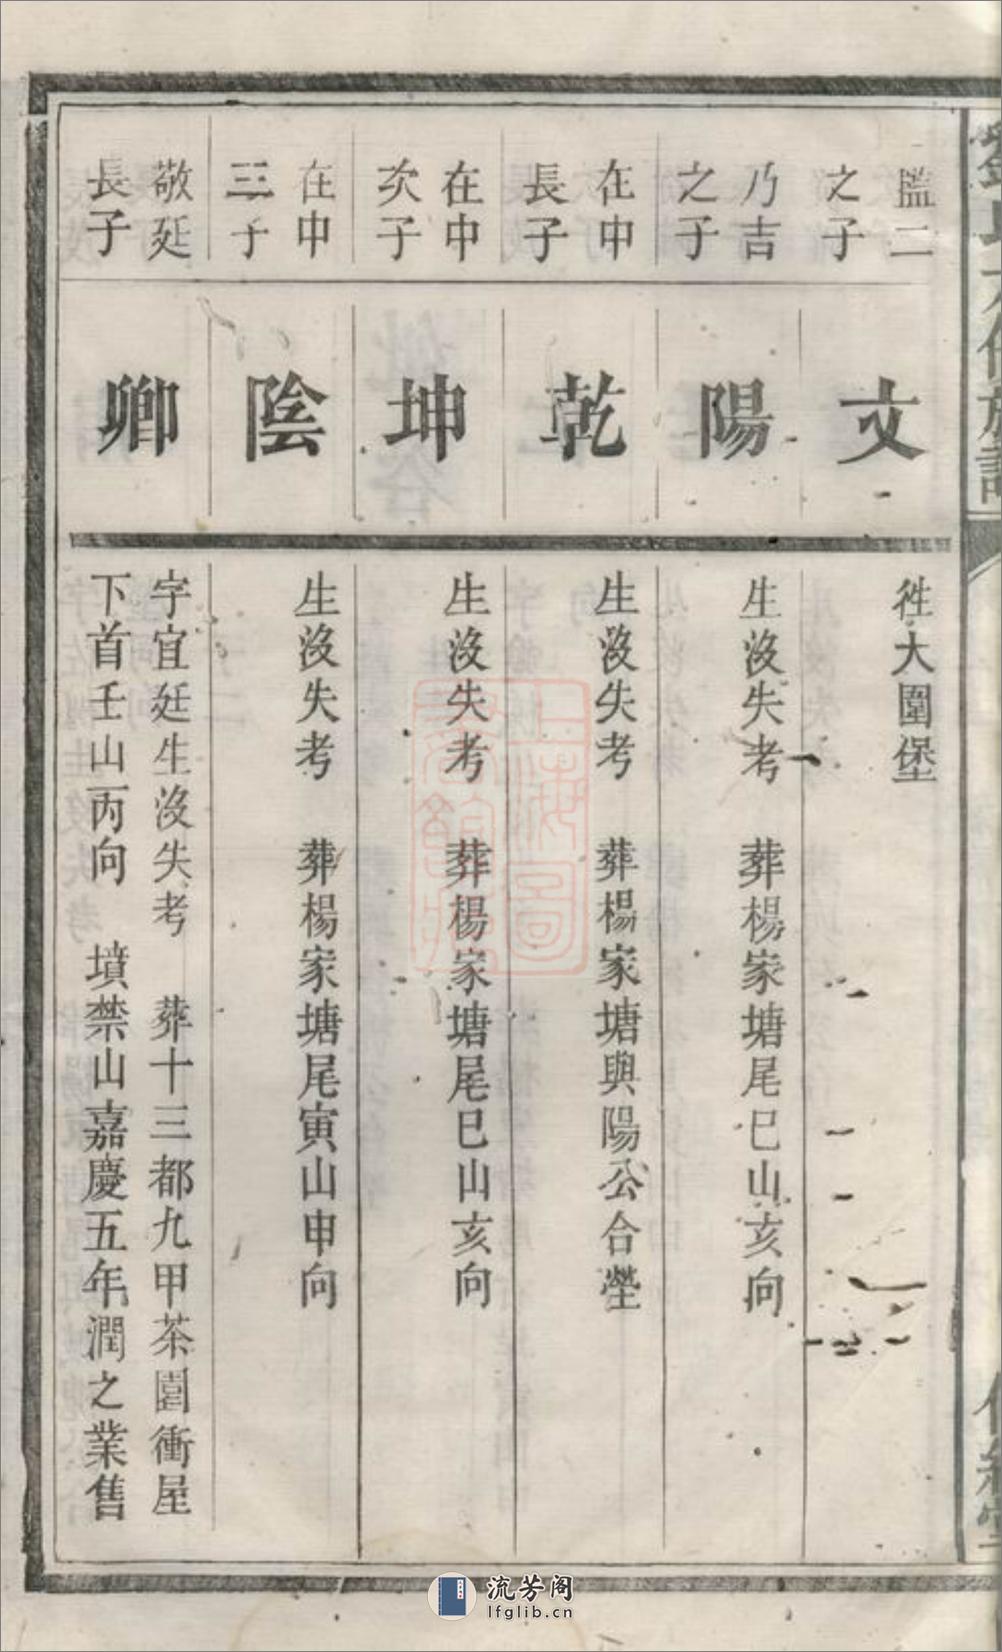 監二
之子
文
徃大圍堡
乃吉
之子
陽
生沒失考 葬楊家塘尾巳山亥向
在中
長子
乾
生沒失考 葬楊家塘與陽公合塋
在中
次子
坤
生沒失考 葬楊家塘尾巳山亥向
在中
三子
陰
生沒失考 葬楊家塘尾寅山申向
敬廷
長子
卿
字宜廷生沒失考 葬十三都九甲茶園衝屋
下首壬山丙向 墳禁山嘉慶五年潤之業售
流芳阁
lfglib.cn